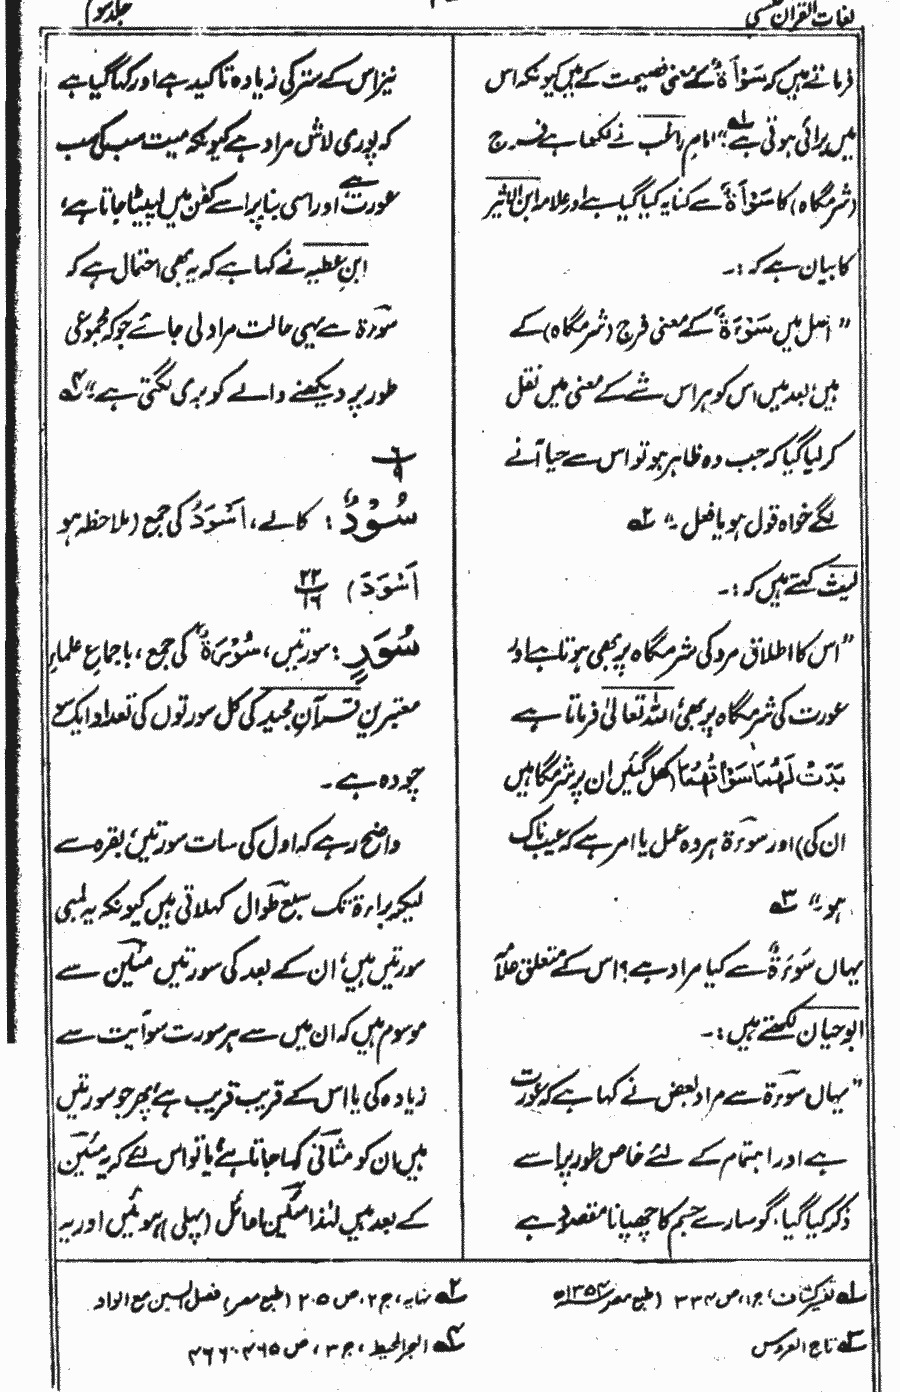 لغات القرآن
جلد سوم
فرماتے ہیں کہ سَوْأَۃٌ کے معنی فضیحت کے ہیں کیونکہ اس
میں برائی ہوتی ہے لہ امام راغب نے لکھا ہے فرج
(شرمگاہ) کا سَوْأَۃٌ سے کنایہ کیا گیا ہے اور علامہ ابن الاثیر
کا بیان ہے کہ :۔
" اصل میں سَوْءَۃٌ کے معنی فرج (شرمگاہ) کے
ہیں، بعد میں اس کو ہر اس شے کے معنی میں نقل
کر لیا گیا کہ جب وہ ظاہر ہو تو اس سے حیا آنے
لگے خواہ قول ہو یا فعل ۔" ۲ہ
لیث کہتے ہیں کہ :۔
" اس کا اطلاق مرد کی شرمگاہ پر بھی ہوتا ہے اور
عورت کی شرمگاہ پر بھی، اللہ تعالیٰ فرماتا ہے
بَدَتْ لَهُمَا سَوْاٰتُهُمَا (کھل گئیں ان پر شرمگاہیں
ان کی) اور سوءۃ ہر وہ عمل یا امر ہے کہ عیب ناک
ہو ۔" ۳ہ
یہاں سَوْءَۃٌ سے کیا مراد ہے؟ اس کے متعلق علامہ
ابو حیان لکھتے ہیں :۔
" یہاں سوءۃ سے مراد بعض نے کہا ہے کہ عورت
ہے اور اہتمام کے لئے خاص طور پر اسے
ذکر کیا گیا، گو سارے جسم کا چھپانا مقصود ہے
نیز اس کے ستر کی زیادہ تاکید ہے اور کہا گیا ہے
کہ پوری لاش مراد ہے کیونکہ میت سب کی سب
عورت ہے اور اسی بنا پر اسے کفن میں لپیٹا جاتا ہے،
ابن عطیہ نے کہا ہے کہ یہ بھی احتمال ہے کہ
سوءۃ سے یہی حالت مراد لی جائے جو کہ مجموعی
طور پر دیکھنے والے کو بری لگتی ہے ۔" ۴ہ
۶
۹
سُوْدٌ : کالے، اَسْوَدُ کی جمع (ملاحظہ ہو
اَسْوَدَ) ۲۲
۱۶
سُوَرٍ : سورتیں، سُوْرَۃٌ کی جمع، باجماع علماء
معتبرین قرآن مجید کی کل سورتوں کی تعداد ایک سو
چودہ ہے ۔
واضح رہے کہ اول کی سات سورتیں، بقرہ سے
لیکر براءۃ تک سبع طوال کہلاتی ہیں کیونکہ یہ لمبی
سورتیں ہیں، ان کے بعد کی سورتیں مئین سے
موسوم ہیں کہ ان میں سے ہر سورت سو آیت سے
زیادہ کی یا اس کے قریب قریب ہے، پھر جو سورتیں
ہیں ان کو مثانی کہا جاتا ہے، یا تو اس لئے کہ یہ مئین
کے بعد ہیں لہٰذا مئین تو اوائل (پہلی) ہوئیں اور یہ
لہ تفسیر کشاف، ج ۱، ص ۳۳۴ (طبع مصر ۱۳۵۴ھ)
۲ہ نہایہ، ج ۲، ص ۲۰۵ (طبع مصر) فصل السین مع الواو
۳ہ تاج العروس
۴ہ البحر المحیط، ج ۳، ص ۴۶۵، ۴۶۶